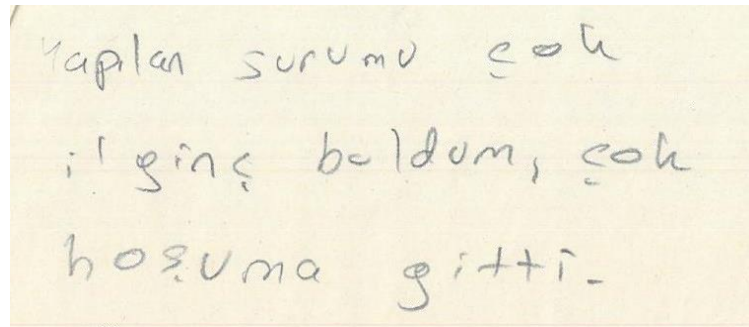 Yapılan surumu çok
ilginç buldum, çok
hoşuma gitti.